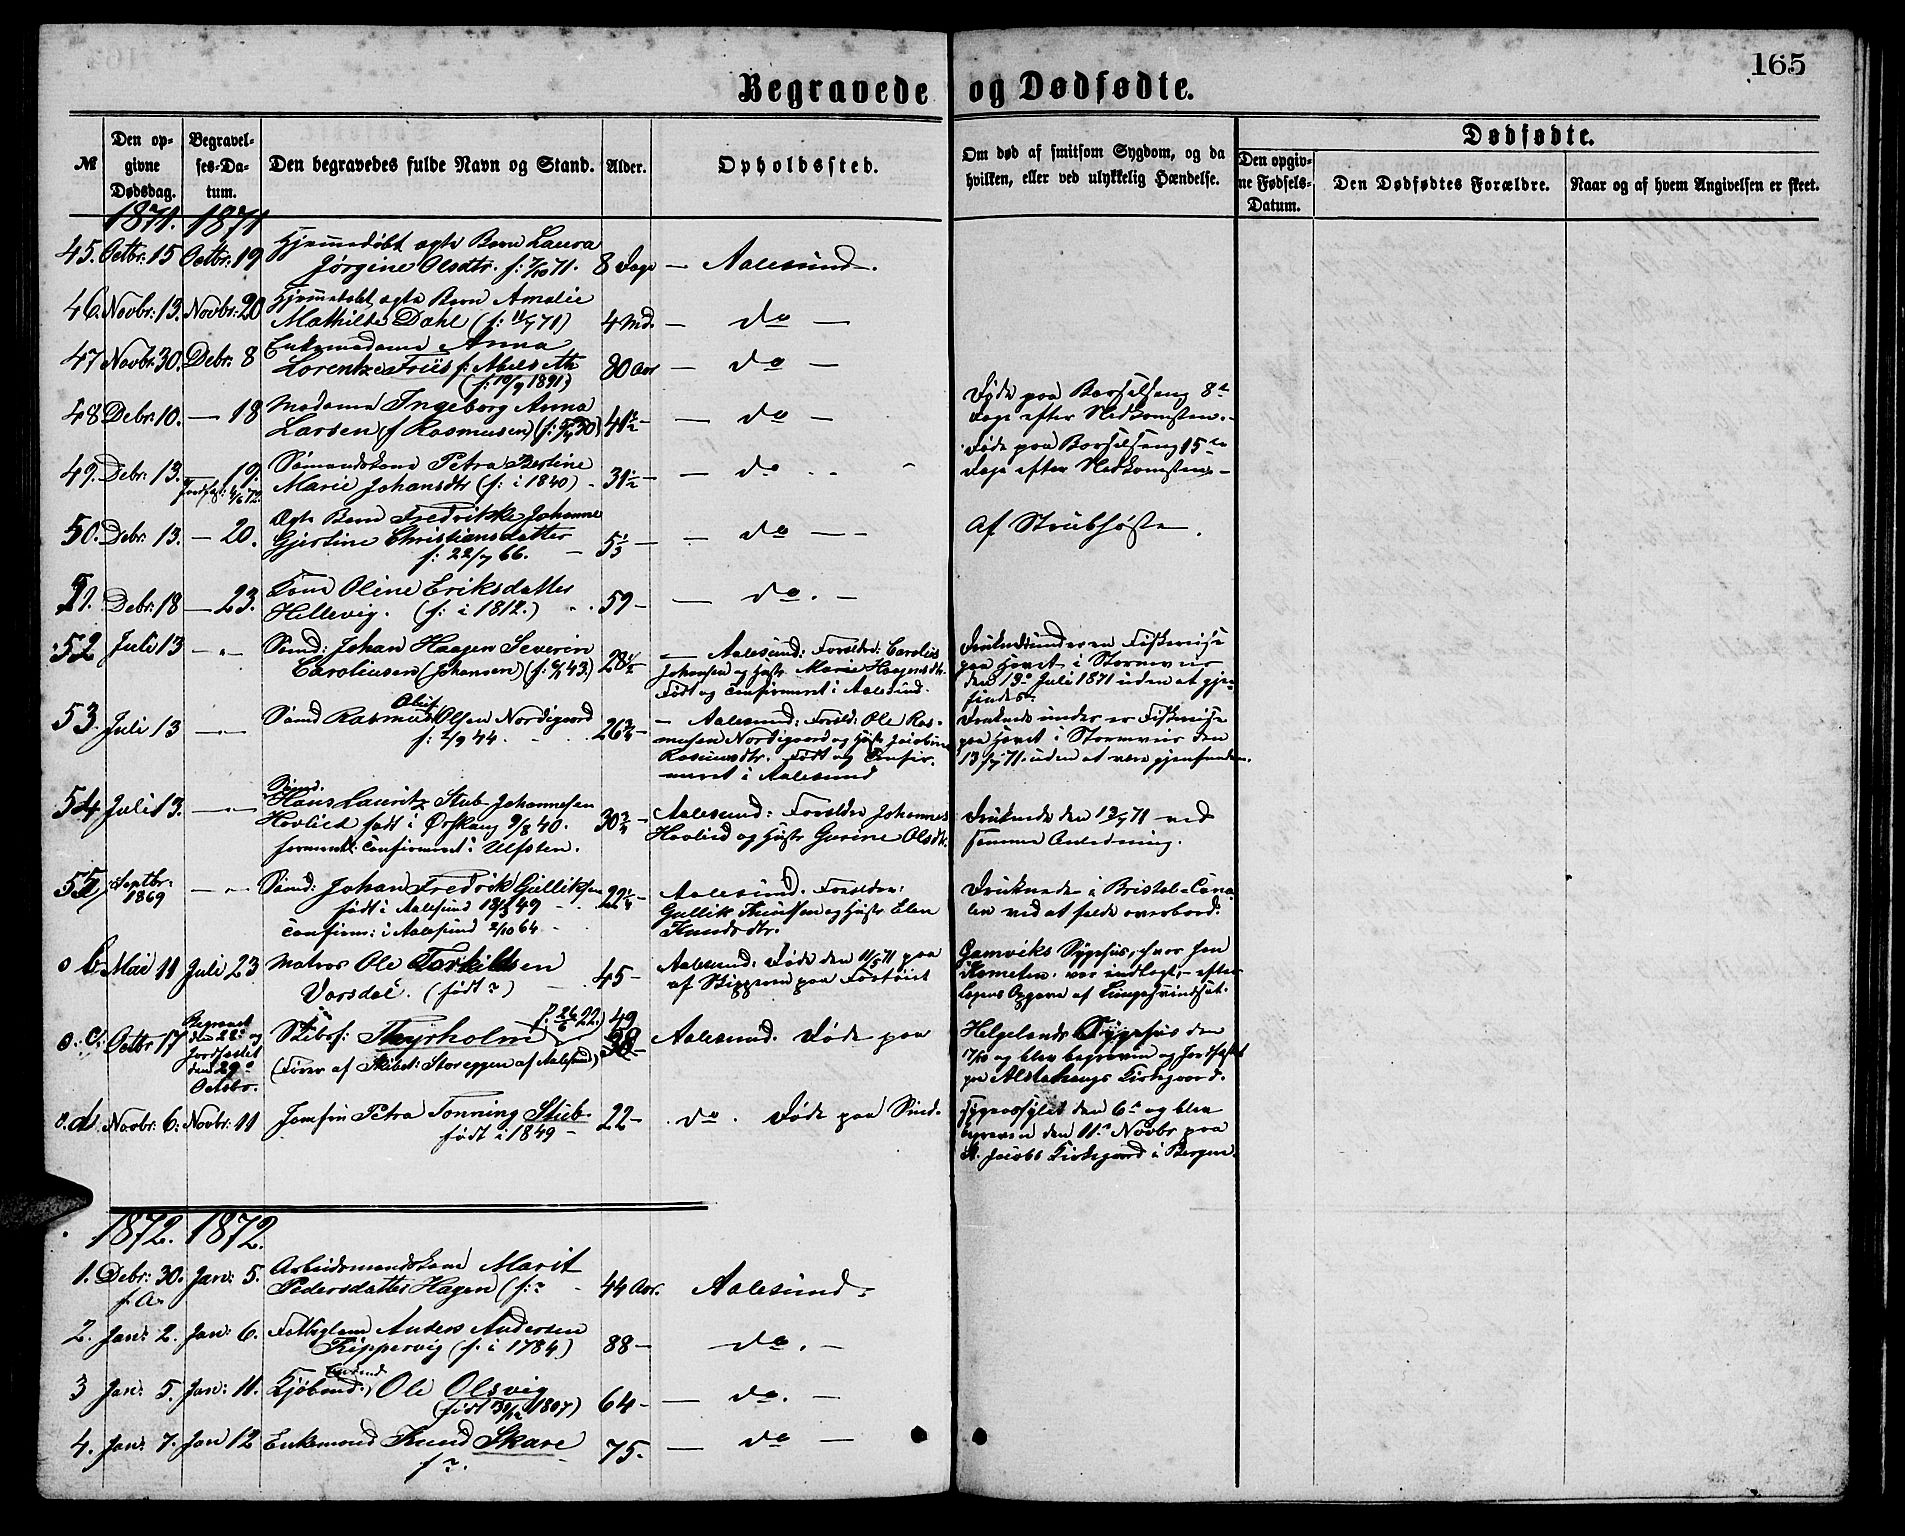 165
Begravede og Dødfødte.
№
Den opgivne Dødsdag.
Begravelses-Datum.
Den begravedes fulde Navn og Stand.
Alder.
Opholdssted.
Om død af smitsom Sygdom, og da hvilken, eller ved ulykkelig Hændelse.
Dødfødte.
Den opgivne Fødsels-Datum.
Den Dødfødtes Forældre.
Naar og af hvem Angivelsen er skeet.
1871. 1871
45. Octbr: 15 Octbr: 19 Hjemmedøbt ægte Barn Laura
Jørgine Olsdtr. f: 7/10 71. 8 Dage — Aalesund.
46. Novbr: 13. Novbr: 20 Hjemmedøbt ægte Barn Amalie
Mathilde Dahl (f: 11/7 71) 4 Md. — do —
47 Novbr 30. Debr: 8 Enkemadame Anna
Lorentze Friis f: Abelseth 80 Aar — do —
(f: 10/9 1891)
48 Debr: 10. — 18 Madame Ingeborg Anna
Larsen (f Rasmusen) 41½ — do —
Døde paa Barselseng 8de
Dage efter Nedkomsten.
49. Debr: 13. — 19. Sømandskone Petra Bertine
Marie Johansdtr (f: i 1840) 31½ — do
Døde paa Barselseng 15de
Dage efter Nedkomsten.
50. Debr: 13. — 20. Ægte Barn Fredrikke Johanne
Gjertine Christiansdatter 5⅓ — do —
f: 22/7 66.
Af Strubehoste.
51. Debr: 18 — 23. Kone Oline Eriksdatter
Hellevig. (f: i 1812.) 59 — do. —
52 Juli 13 — " — Sømd: Johan Haagen Severin
Caroliusen (Johansen) 28½
— Aalesund: Forældre: Carolius
Johansen og Hustr Marie Haagensdtr.
Født og Confirmeret i Aalesund.
Druknede under en Fiskereise
paa Havet i Stormveir
den 13de Juli 1871 uden at gjenfindes.
53. Juli 13 — " — Sømd Rasmus Oluf Olsen Nordigaard
f: 2/9 44. 26¾
— Aalesund: Foræld: Ole Rasmusen
Nordigaard og Hustr Jacobine
Rasmusdtr. Født og Confirmeret
i Aalesund
Druknede under en Fiskereise
paa Havet i Stormveir den
13/7 71. uden at være gjenfunden.
54 Juli 13. — " — Sømd. Hans Lauritz Stub Johannesen
Hovlied født i Ørskoug 9/8 40. 30¾
Confirmeret i Ulfsten.
Aalesund: Forældre Johannes
Hovlied og Hustr Gurine Olsdtr.
Druknede den 13/7 71 ved
samme Anledning.
55 Septbr: 1869 — " — Sømd: Johan Fredrik Gulliksen
født i Aalesund 18/3 49 22¼
Confirm: i Aalesund 2/10 64.
Aalesund. Forældre:
Gullik Knutsen og Hustr Elen
Knudsdtr.
Druknede i Bristol-Canalen
ved at falde overbord.
o b. Mai 11 Juli 23 Matros Ole Torkildsen
Vorsdal. (født ?) 45 —
Aalesund: Døde den 11/5 71 paa
Gamviks Sygehus, hvor han
af Skipperen paa Fartøiet
Kometen. var indlagt, — efter
Lægens Opgave af Lungesvindsot.
o. c: Octbr 17 Begravet den 22de og Jordfæstet den 29de Octobr.
Skibsf: Thyrholm f: 26/6 22.) 49
(Fører af Skibet: Storeggen af Aalesund)
Aalesund. Døde paa
Helgelands Sygehus den
17/10 og blev begraven og Jordfæstet
paa Alstahaugs Kirkegaard.
o. d. Novbr: 6: Novbr: 11 Jomfru Petra Tonning Stub
født i 1849 — 22 —
do. Døde paa Sindssygeasylet
den 6te og blev
begraven den 11te Novbr paa
St. Jacobs Kirkegaard i Bergen.
1872. 1872.
1. Debr: 30. Jan: 5. Arbeidsmandskone Marit
f. A. Pedersdatter Hagen (f: ? 44 Aar. Aalesund.
2. Jan: 2. Jan: 6. Fattiglem Anders Andersen
Kippervig (f: i 1784) 88 — do. —
3 Jan: 5. Jan: 11. Kjøbmd: Ole Olsvig
(født 31/12 1807) 64 — do. —
4. Jan: 7. Jan 12 Enkemand Knud Skare
f ?. 75. — do —